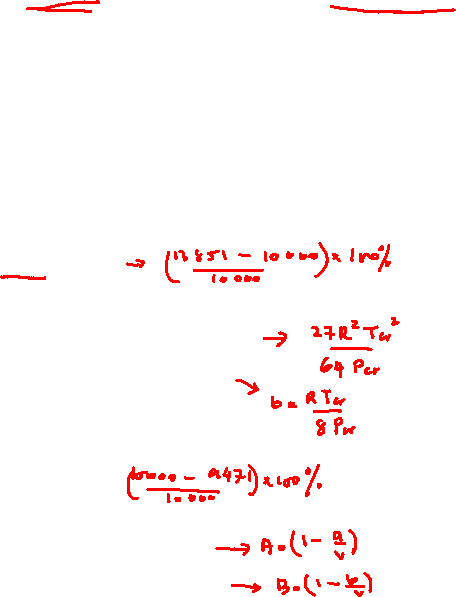 → (12851 - 10000 / 10000) × 100%
→ 27R² Tcr² / 64 Pcr
→ b = R Tcr / 8 Pcr
(10000 - 9471 / 10000) × 100%
→ A = (1 - a/v)
→ B = (1 - b/v)